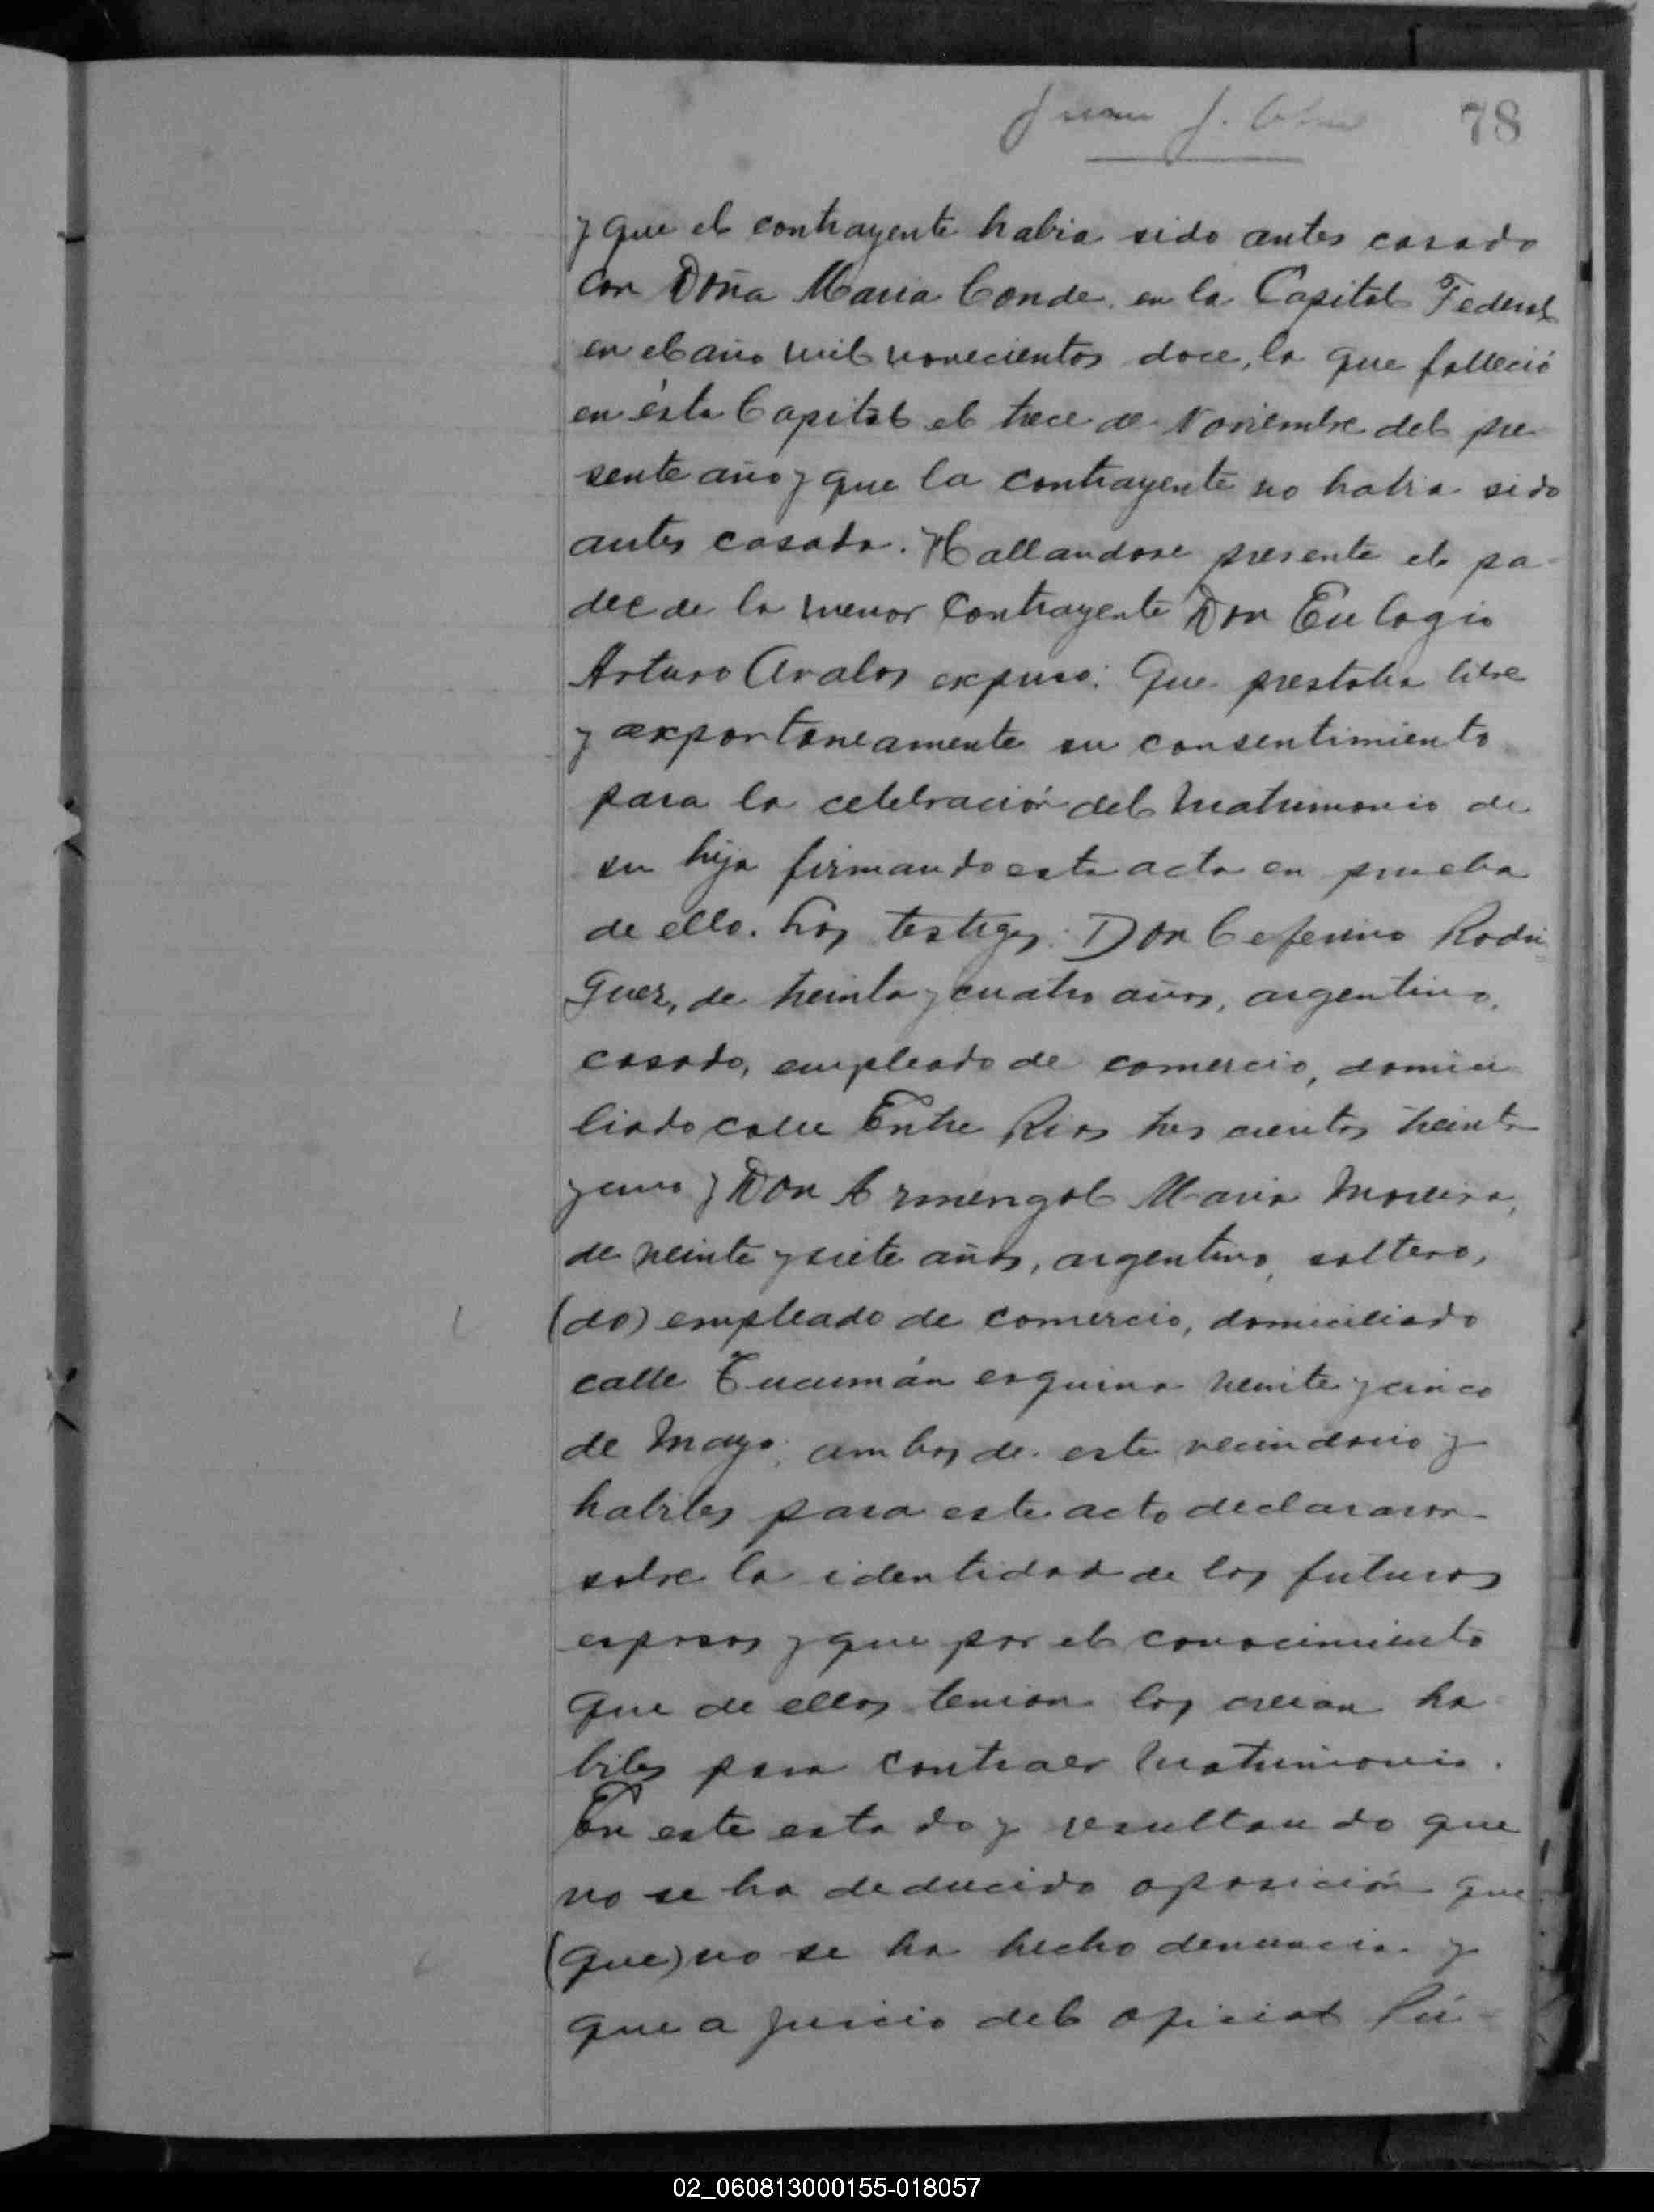 Juan J.
78
y que el contrayente habia sido antes casado
con Doña Maria Conde, en la Capital Federal
en el año mil novecientos doce, la que falleció
en ésta Capital el trece de Noviembre del pre
sente año y que la contrayente no habia sido
antes casada. Hallandose presente el pa-
dre de la menor contrayente Don Eulogio
Arturo Avalos expuso: Que prestaba libre
y expontaneamente su consentimiento
para la celebración del matrimonio de
su hija firmando esta acta en prueba
de ello. Los testigos: Don Ceferino Rodri=
guez, de treinta y cuatro años, argentino,
casado, empleado de comercio, domici
liado calle Entre Rios tres cientos treinta
y uno y Don Armengol Maria Moreira,
de veinte y siete años, argentino, soltero,
(do) empleado de comercio, domiciliado
calle Tucumán esquina veinte y cinco
de Mayo; ambos de este vecindario y
habiles para este acto declararon
sobre la identidad de los futuros
esposos y que por el conocimiento
que de ellos tenian los creian ha
biles para contraer matrimonio.
En este estado y resultando que
no se ha deducido oposición que
(que) no se ha hecho denuncia y
que a juicio del oficial Pú-
02_060813000155-018057